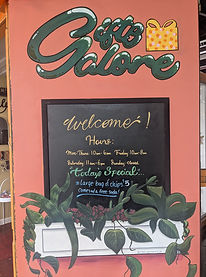 Gifts
Galore
Welcome!
Hours:
Mon-Thurs: 10am-6pm Friday 10am-8pm
Saturday 11am-6pm Sunday: Closed
Today's Special:
a large bag of chips $5